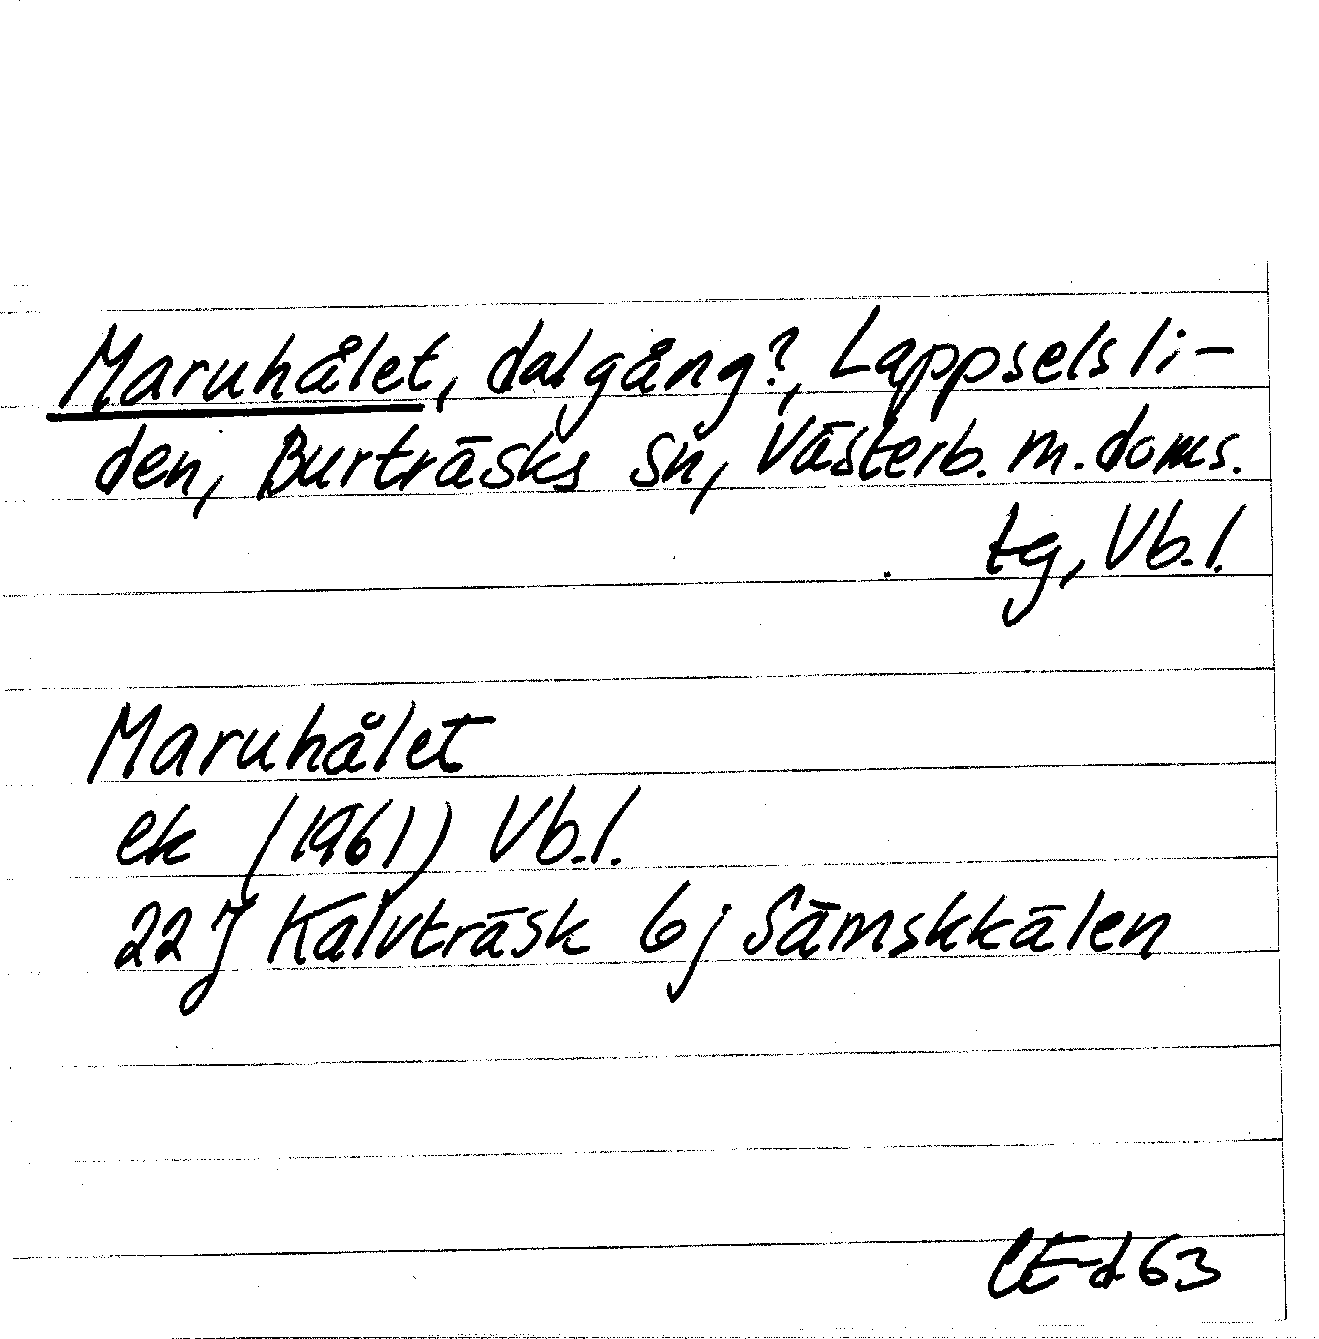 Maruhålet, dalgång?, Lappselsli-
den, Burträsks sn, Västerb. m. doms.
tg, Vb.l.
Maruhålet
ek (1961) Vb.l.
22 J Kalvträsk 6j Sämskkälen
CEd 63